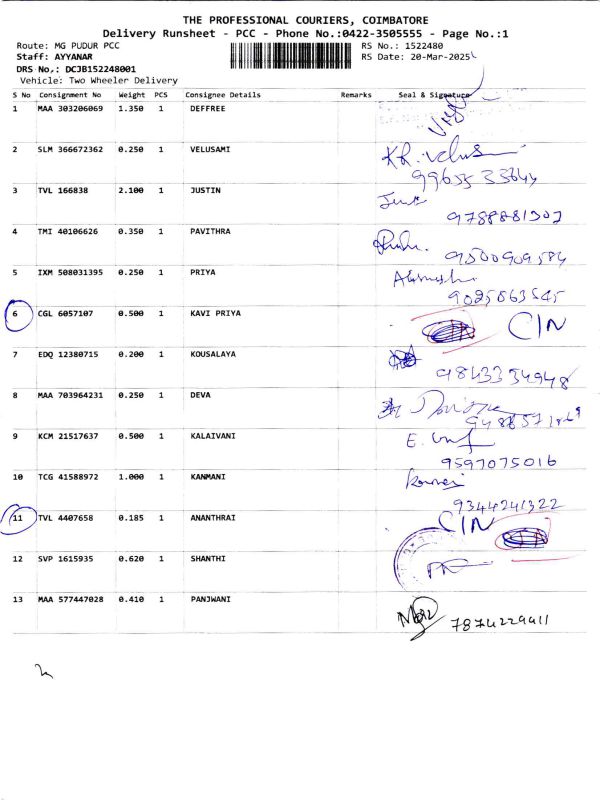 THE PROFESSIONAL COURIERS, COIMBATORE
Delivery Runsheet - PCC - Phone No.:0422-3505555 - Page No.:1
Route: MG PUDUR PCC RS No.: 1522480
Staff: AYYANAR RS Date: 20-Mar-2025
DRS No.: DCJB152248001
Vehicle: Two Wheeler Delivery
S No Consignment No Weight PCS Consignee Details Remarks Seal & Signature
1 MAA 303206069 1.350 1 DEFFREE
2 SLM 366672362 0.250 1 VELUSAMI
9965533644
3 TVL 166838 2.100 1 JUSTIN
9788881302
4 TMI 40106626 0.350 1 PAVITHRA
9500909584
5 IXM 508031395 0.250 1 PRIYA
9025863545
6 CGL 6057107 0.500 1 KAVI PRIYA CIN
7 EDQ 12380715 0.200 1 KOUSALAYA
9843354948
8 MAA 703964231 0.250 1 DEVA
9 KCM 21517637 0.500 1 KALAIVANI
9597075016
10 TCG 41588972 1.000 1 KANMANI
9344241322
11 TVL 4407658 0.185 1 ANANTHRAI CIN
12 SVP 1615935 0.620 1 SHANTHI
13 MAA 577447028 0.410 1 PANJWANI
7874229911